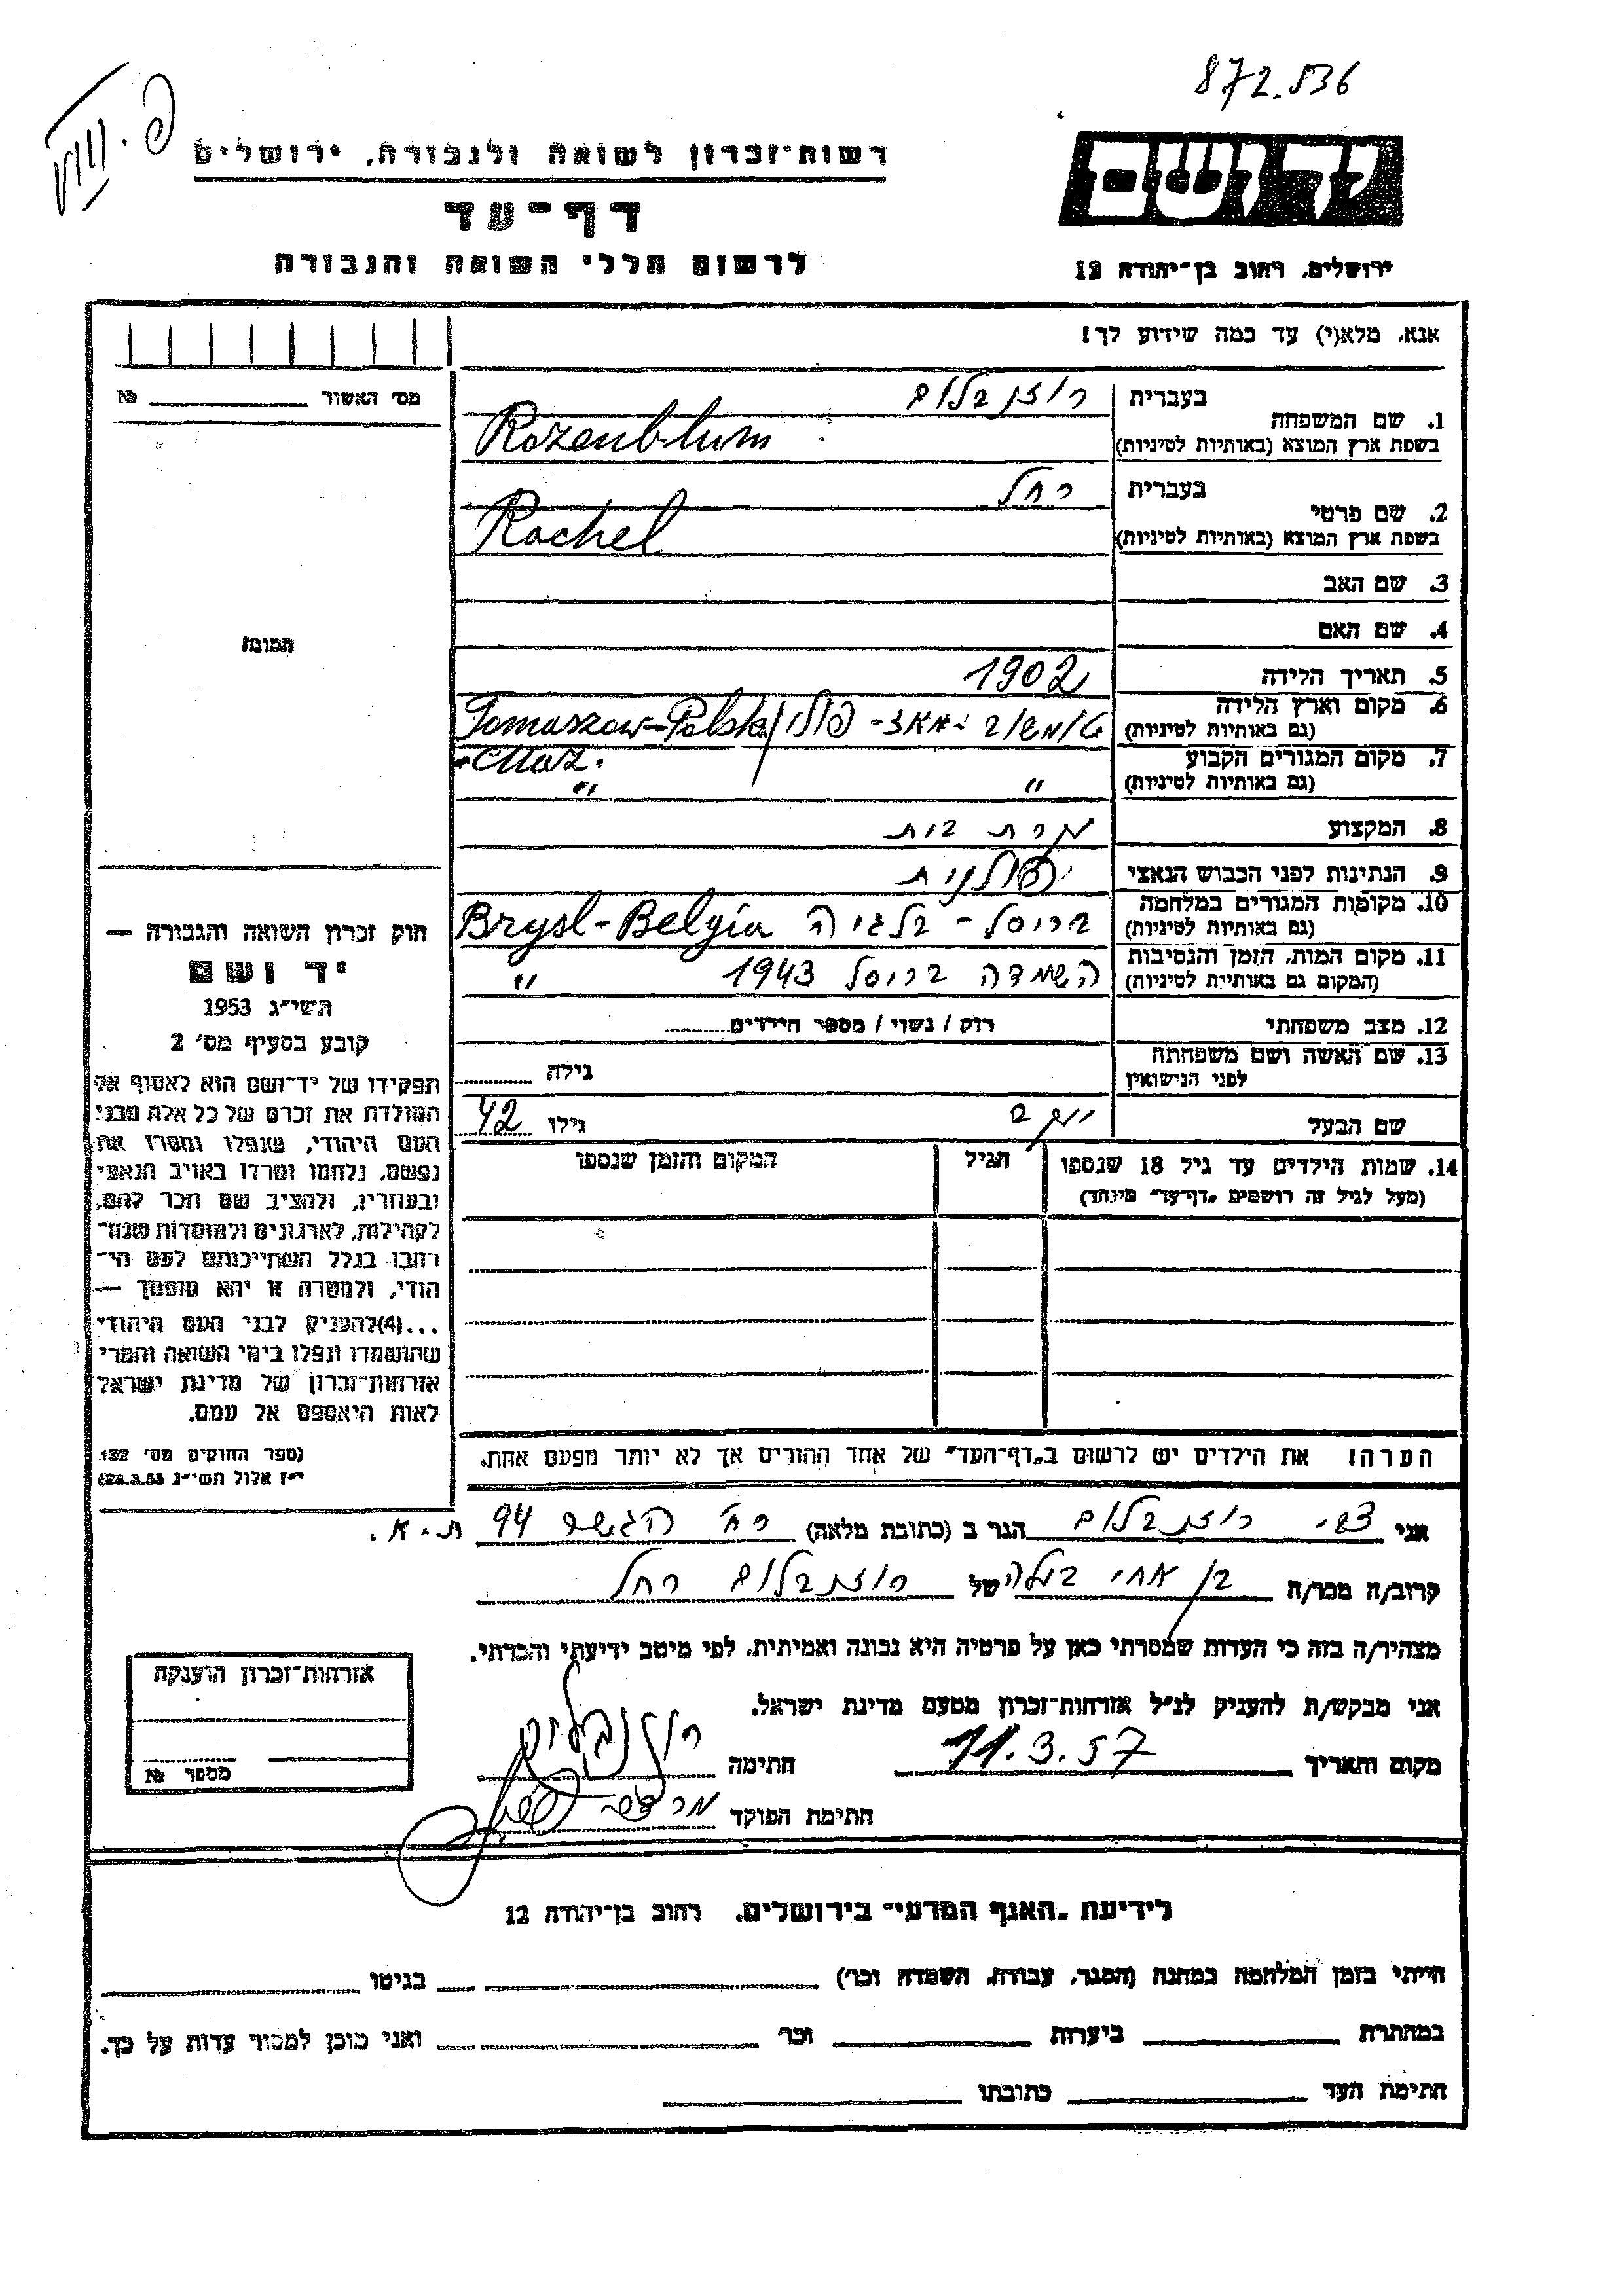 872.536
רשות־זכרון לשואה ולגבורה, ירושלים
דף־עד
לרשום חללי השואה והגבורה
יד ושם
ירושלים, רחוב בן־יהודה 12
אנא, מלא(י) עד כמה שידוע לך!
מס׳ האשור № 
1. שם המשפחה
בעברית רוזנבלום
בשפת ארץ המוצא (באותיות לטיניות) Rozenblum
2. שם פרטי
בעברית רחל
בשפת ארץ המוצא (באותיות לטיניות) Rachel
3. שם האב
4. שם האם
5. תאריך הלידה 1902
6. מקום וארץ הלידה
(גם באותיות לטיניות) טומשוב -מאז- פולין / Tomaszow-Polska
-Maz.
7. מקום המגורים הקבוע
(גם באותיות לטיניות) " "
8. המקצוע עקרת בית
9. הנתינות לפני הכבוש הנאצי פולנית
10. מקומות המגורים במלחמה
(גם באותיות לטיניות) בריסל - בלגיה Brysl-Belgia
11. מקום המות, הזמן והנסיבות
(המקום גם באותיות לטיניות) השמדה בריסל 1943 "
12. מצב משפחתי רוק / נשוי / מספר הילדים
13. שם האשה ושם משפחתה
לפני הנישואין גילה
שם הבעל יעקב גילו 42
14. שמות הילדים עד גיל 18 שנספו
(מעל לגיל זה רושמים „דף־עד" מיוחד)
הגיל
המקום והזמן שנספו
הערה! את הילדים יש לרשום ב„דף־העד" של אחד ההורים אך לא יותר מפעם אחת.
תמונה
חוק זכרון השואה והגבורה —
יד ושם
תשי״ג 1953
קובע בסעיף מס׳ 2
תפקידו של יד־ושם הוא לאסוף אל
המולדת את זכרם של כל אלה מבני
העם היהודי, שנפלו ומסרו את
נפשם, נלחמו ומרדו באויב הנאצי
ובעוזריו, ולהציב שם וזכר להם,
לקהילות, לארגונים ולמוסדות שנח־
רבו בגלל השתייכותם לעם הי־
הודי, ולמטרה זו יהא מוסמך —
...(4)להעניק לבני העם היהודי
שהושמדו ונפלו בימי השואה והמרי
אזרחות־זכרון של מדינת ישראל
לאות היאספם אל עמם.
(ספר החוקים מס׳ 132,
י״ז אלול תשי״ג 28.8.53)
אני צבי רוזנבלום הגר ב (כתובת מלאה) רח׳ הגשר 94 ת.א.
קרוב/ה מכר/ה בן אחי בעלה של רוזנבלום רחל
מצהיר/ה בזה כי העדות שמסרתי כאן על פרטיה היא נכונה ואמיתית, לפי מיטב ידיעתי והכרתי.
אני מבקש/ת להעניק לנ״ל אזרחות־זכרון מטעם מדינת ישראל.
מקום ותאריך 11.3.57 חתימה רוזנבלום
חתימת הפוקד
אזרחות־זכרון הוענקה
מספר №
לידיעת „האגף המדעי" בירושלים, רחוב בן־יהודה 12
הייתי בזמן המלחמה במחנה (הסגר, עבודה, השמדה וכו׳) בגיטו
במחתרת ביערות וכו׳ ואני מוכן למסור עדות על כך.
חתימת העד כתובתו